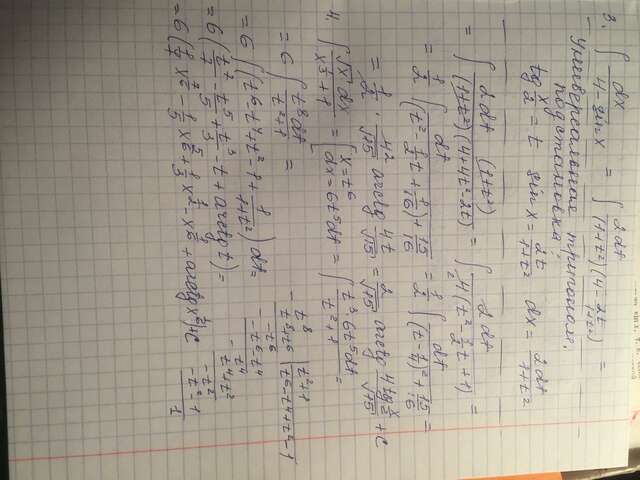 3. ∫ dx/(4 - sin x) = ∫ 2dt/((1+t²)(4 - 2t/(1+t²))) =
Универсальная тригоном.
подстановка:
tg x/2 = t sin x = 2t/(1+t²) dx = 2dt/(1+t²)
= ∫ 2dt (1+t²)/((1+t²)(4+4t²-2t)) = ∫ 2dt/(4(t² - 1/2 t + 1)) =
= 1/2 ∫ dt/((t² - 1/2 t + 1/16) + 15/16) = 1/2 ∫ dt/((t - 1/4)² + 15/16) =
= 1/2 · 4/√15 arctg 4t/√15 = 2/√15 arctg (4 tg x/2)/√15 + C
4. ∫ √x dx/(x^(1/3)+1) = | x = t⁶ dx = 6t⁵dt | = ∫ t³·6t⁵dt/(t²+1) =
= 6 ∫ t⁸dt/(t²+1) =
= 6 ∫ (t⁶ - t⁴ + t² - 1 + 1/(1+t²)) dt =
= 6 (t⁷/7 - t⁵/5 + t³/3 - t + arctg t) =
= 6 (1/7 x^(7/6) - 1/5 x^(5/6) + 1/3 x^(1/2) - x^(1/6) + arctg x^(1/6)) + C
- t⁸ | t²+1
t⁸+t⁶ | t⁶-t⁴+t²-1
-t⁶
-t⁶-t⁴
t⁴
t⁴+t²
-t²
-t²-1
1